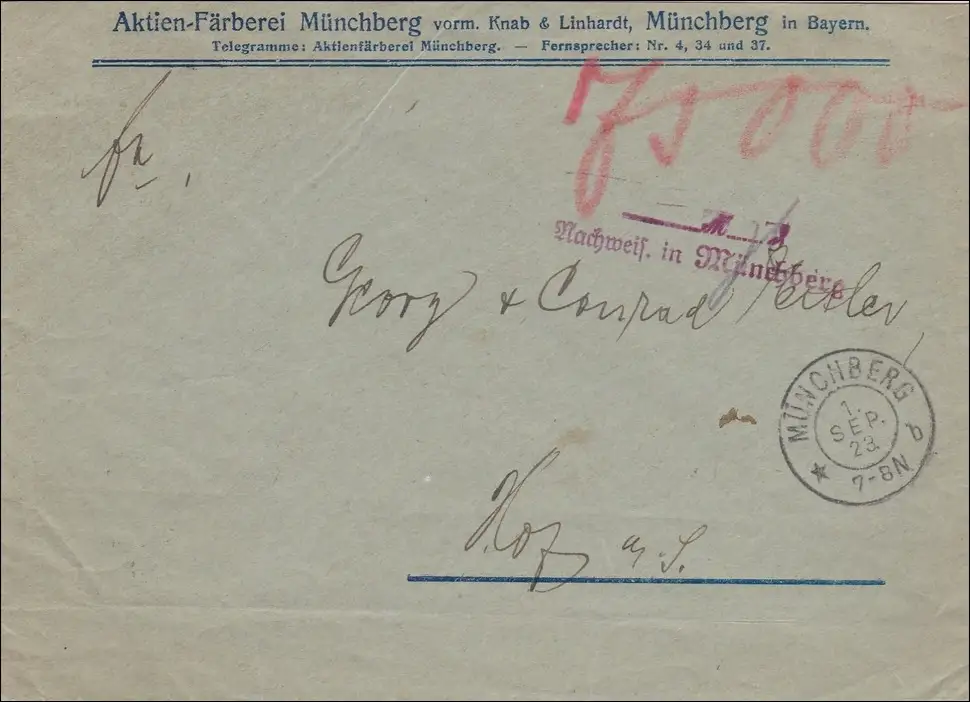 Aktien-Färberei Münchberg vorm. Knab & Linhardt, Münchberg in Bayern.
Telegramme: Aktienfärberei Münchberg. — Fernsprecher: Nr. 4, 34 und 37.
75000
Fa.
M
Nachweis. in Münchberg
Georg & Conrad
MÜNCHBERG P
1. SEP. 23.
7-8N
Hof a. S.